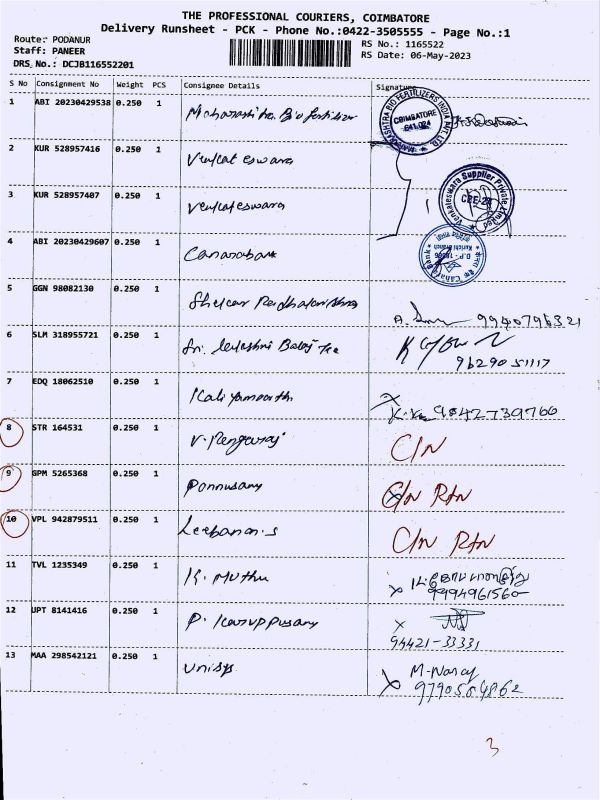 THE PROFESSIONAL COURIERS, COIMBATORE
Delivery Runsheet - PCK - Phone No.:0422-3505555 - Page No.:1
Route: PODANUR
RS No.: 1165522
Staff: PANEER
RS Date: 06-May-2023
DRS No.: DCJB116552201
S No Consignment No Weight PCS Consignee Details Signature
1 ABI 20230429538 0.250 1 Maharashtra Bio fertilizer
MAHARASHTRA BIO FERTILIZERS INDIA PVT. LTD. COIMBATORE 641 024
2 KUR 528957416 0.250 1 Venkateswara
3 KUR 528957407 0.250 1 Venkateswara
Venkateleswara Supplier Private Limited CBE-24
4 ABI 20230429607 0.250 1 Canarabank
Canara Bank Kurichi Branch
5 GGN 98082130 0.250 1 Shekar
A. 9940796321
6 SLM 318955721 0.250 1 Sri Balaj
9629051117
7 EDQ 18062510 0.250 1 Kaliyamoorth
9842739766
8 STR 164531 0.250 1 V. Rengaraj C/N
9 GPM 5265368 0.250 1 Ponnusamy C/N RTN
10 VPL 942879511 0.250 1 Leebanon.s C/N RTN
11 TVL 1235349 0.250 1 K. Muthu
x 9994961560
12 UPT 8141416 0.250 1 P. Karuppusamy x
94421-33331
13 MAA 298542121 0.250 1 Unisys
x 9790564862
3